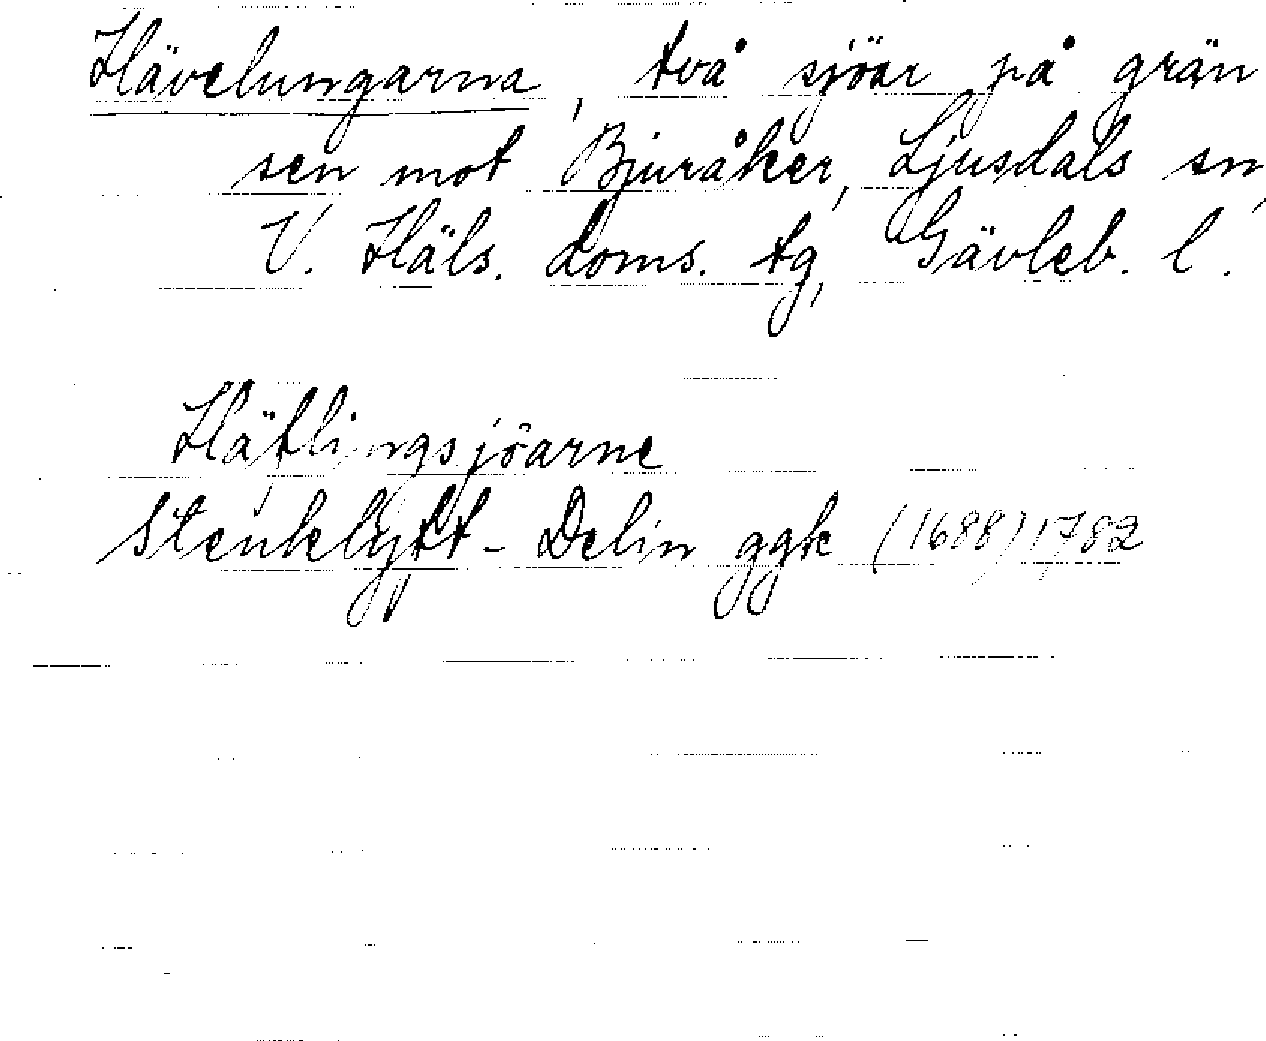 Hävelungarna, två sjöar på grän
sen mot Bjuråker, Ljusdals sn,
V. Häls. doms. tg, Gävleb. l.
Häflingsjöarne
Stenklyft - Delin ggk (1688) 1782